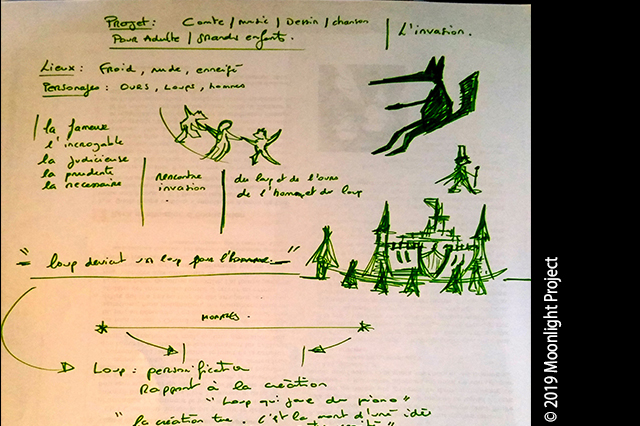 Projet : Conte / music / Dessin / chanson
Pour Adulte / grands enfants.
L'invasion.
Lieux : Froid, rude, enneigé
Personages : ours, Loups, hommes
la fameuse
l'incroyable
la judicieuse
la prudente
la necessaire
rencontre
invasion
du loup et de l'ours
de l'homme et du loup
" loup devient un loup pour l'homme "
Loup : personification
Rapport à la création
" Loup qui joue du piano "
" la création tue. C'est la mort d'une idée
© 2019 Moonlight Project